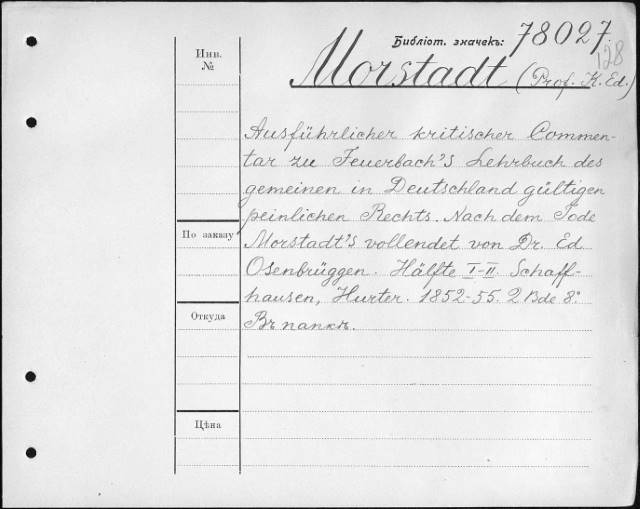 Библіот. значекъ: 78027.
128
Инв. №
Morstadt (Prof. K. Ed.)
Ausführlicher kritischer Commen-
tar zu Feuerbach's Lehrbuch des
gemeinen in Deutschland gültigen
peinlichen Rechts. Nach dem Tode
По заказу
Morstadt's vollendet von Dr. Ed.
Osenbrüggen. Hälfte I-II. Schaff-
hausen, Hurter. 1852-55. 2 Bde 8º.
Откуда
Въ папкѣ.
Цѣна